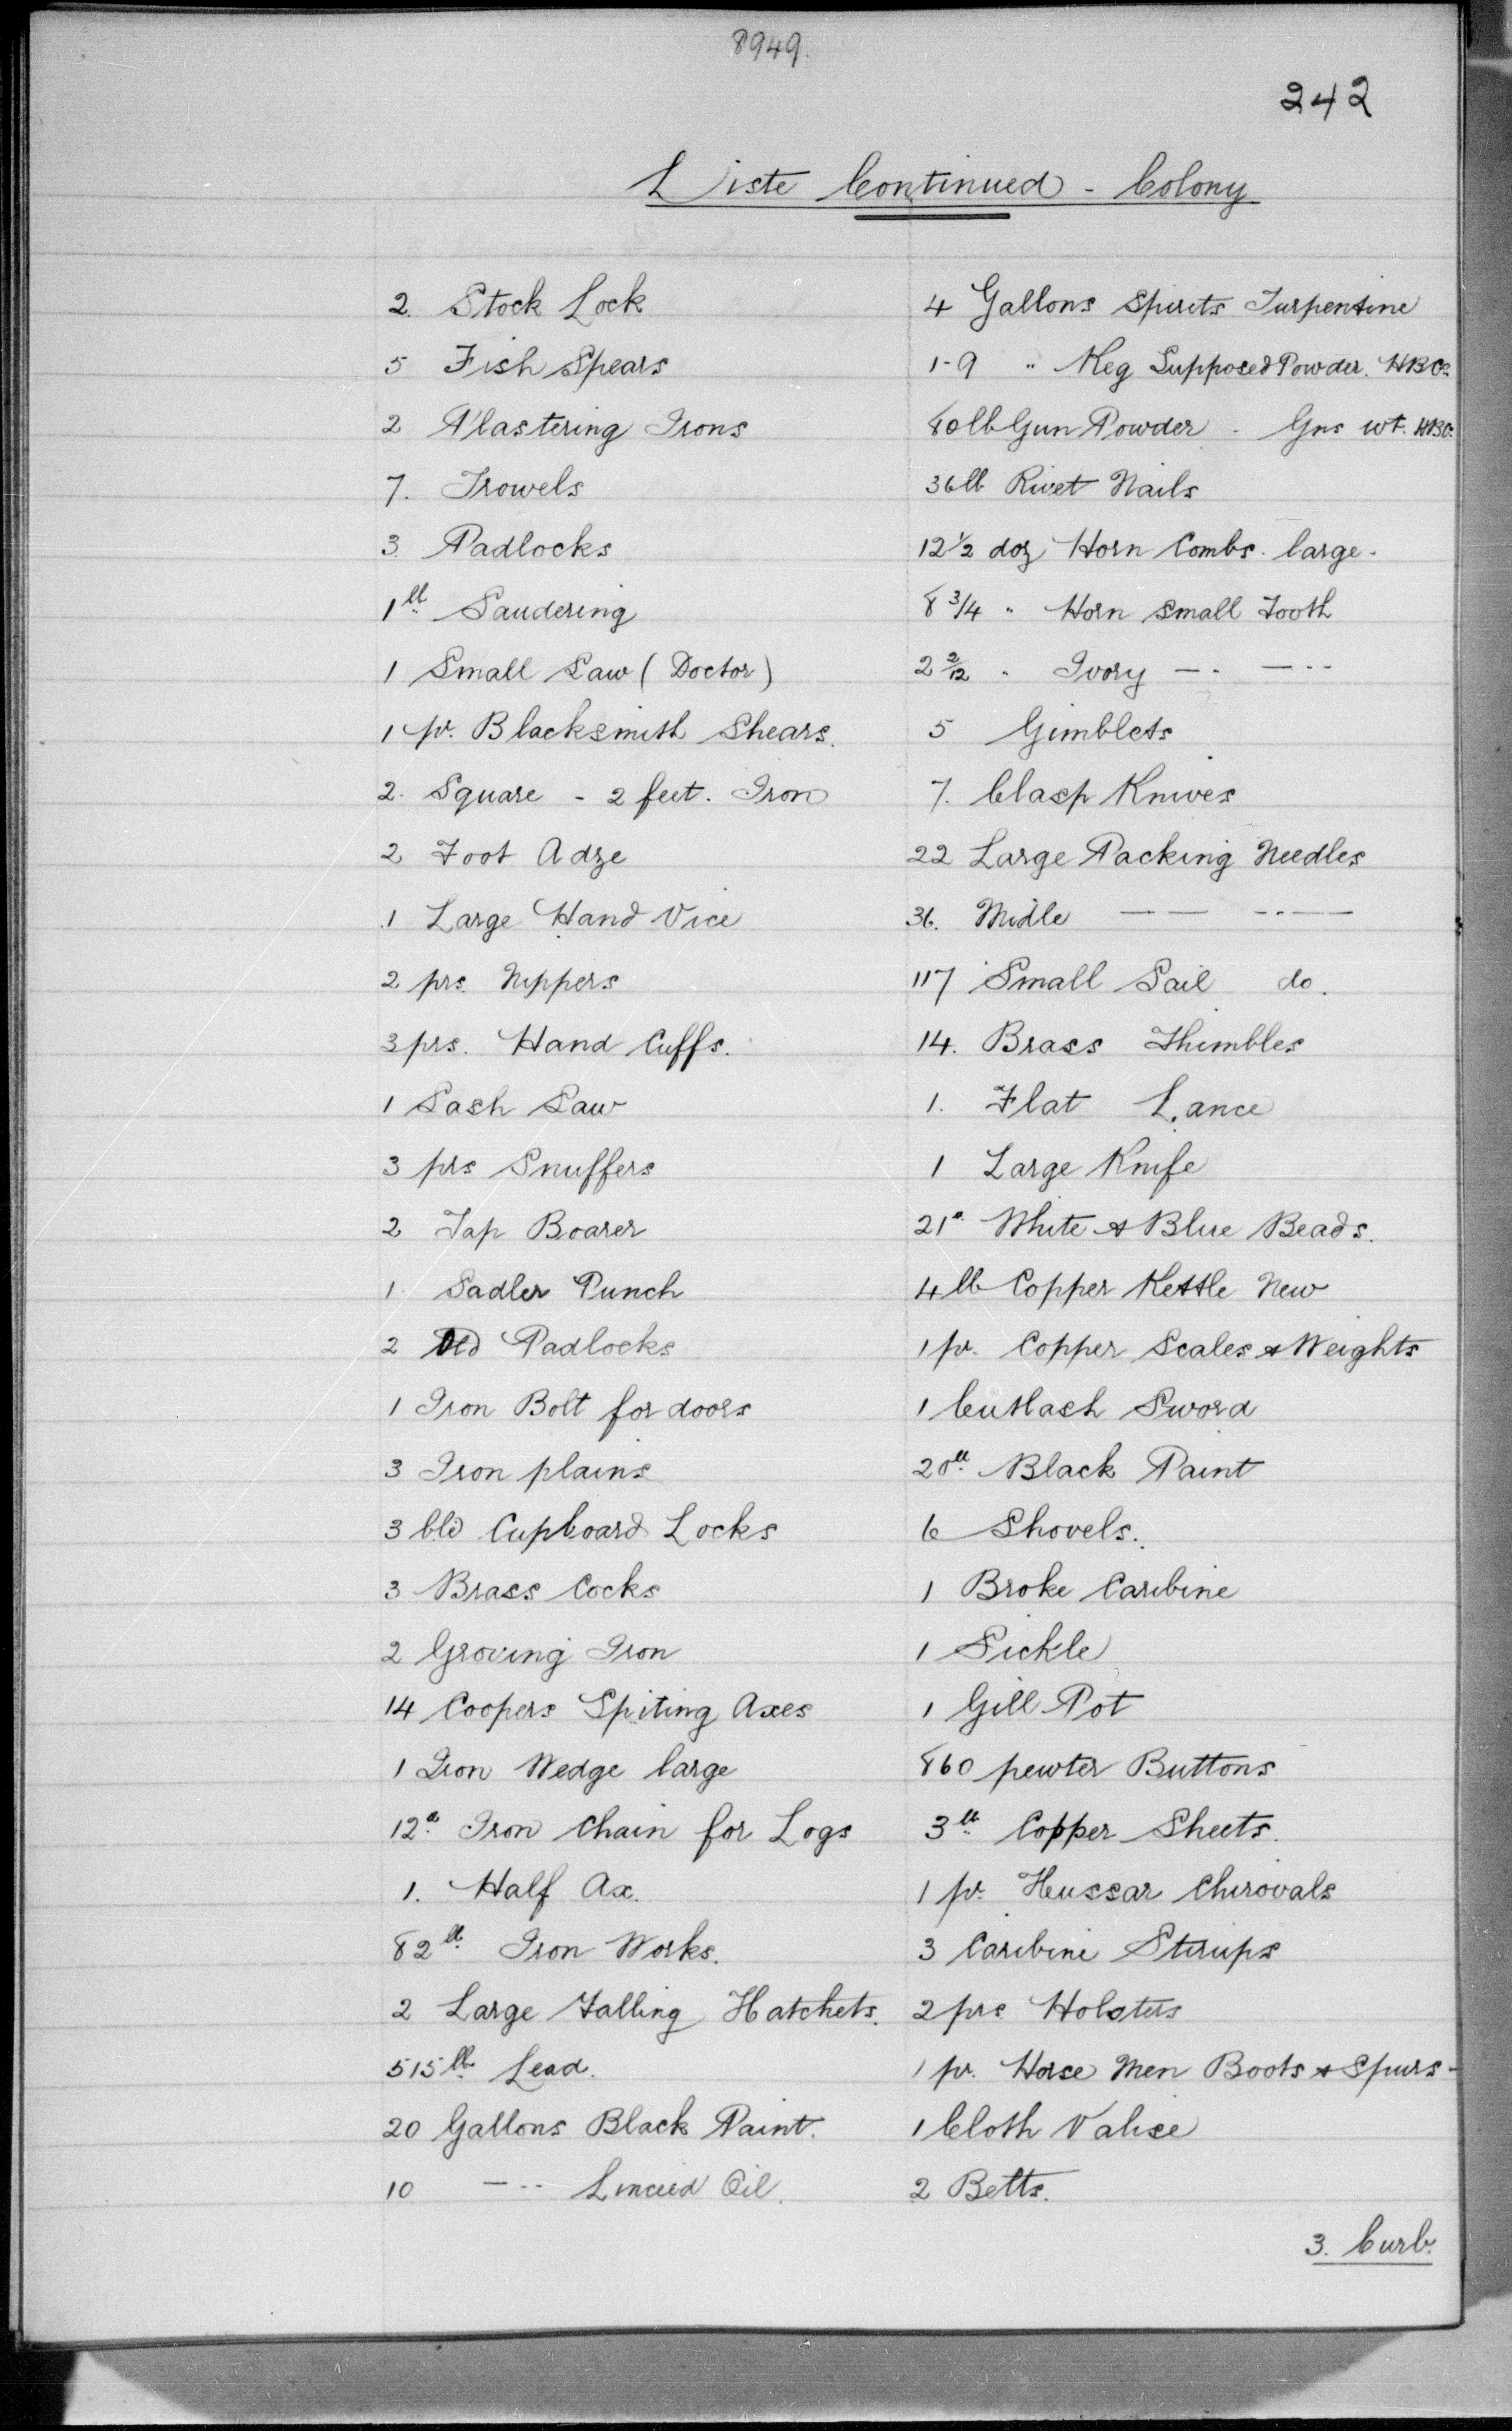 8949.
242
Liste Continued - Colony
2. Stock Lock
5 Fish Spears
2 Plastering Irons
7. Trowels
3. Padlocks
1lb Saudering
1 Small Saw (Doctor)
1 pr. Blacksmith Shears.
2. Square - 2 feet. Iron
2 Foot Adze
1 Large Hand Vice
2 prs. Nippers
3 prs. Hand Cuffs.
1 Sash Saw
3 prs Snuffers
2 Tap Boarer
1 Sadler Punch
2 Old Padlocks
1 Iron Bolt for doors
3 Iron plains
3 old Cupboard Locks
3 Brass Cocks
2 Groving Iron
14 Coopers Spiting Axes
1 Iron Wedge large
12lb Iron Chain for Logs
1. Half Ax.
82lb Iron Works.
2 Large Falling Hatchets.
515lb Lead.
20 Gallons Black Paint.
10 —·· Linceed Oil.
4 Gallons Spirits Turpentine
1-9 " Keg Supposed Powder. HBCo.
80lb Gun Powder - Grs wt. HBCo.
36lb Rivet Nails
12 1/2 doz Horn Combs. large.
8 3/4 " Horn small Tooth
2 2/12 " Ivory —·· —··
5 Gimblets
7. Clasp Knives
22 Large Packing Needles
36. Midle —— ··——
117 Small Sail do.
14. Brass Thimbles
1. Flat Lance
1 Large Knife
21lb White & Blue Beads.
4 lb Copper Kettle New
1 pr. Copper Scales & Weights
1 Cutlash Sword
20lb Black Paint
6 Shovels.
1 Broke Caribine
1 Sickle
1 Gill Pot
860 pewter Buttons
3lb Copper Sheets.
1 pr. Hussar Chirovals
3 Caribine Stirups
2 prs Holsters
1 pr. Horse Men Boots & Spurs -
1 Cloth Valise
2 Betts.
3. Curb.